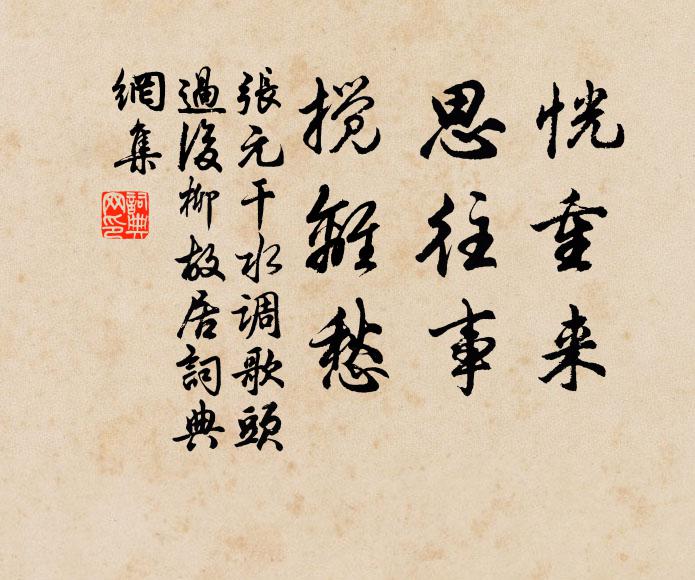 恍重来
思往事
搅離愁
張元干水调歌頭
過後柳故居詞典
網集
詞典
网印